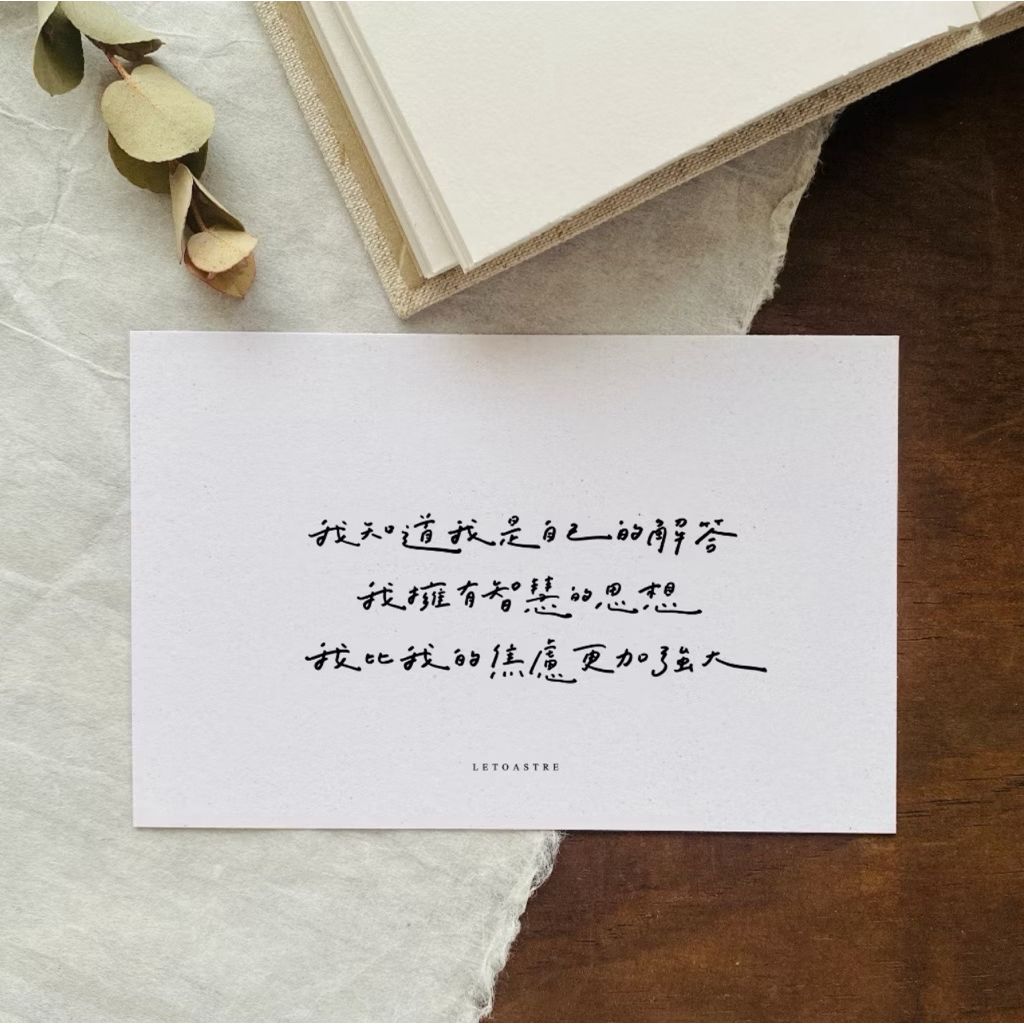 我知道我是自己的解答
我擁有智慧的思想
我比我的焦慮更加強大
LETOASTRE